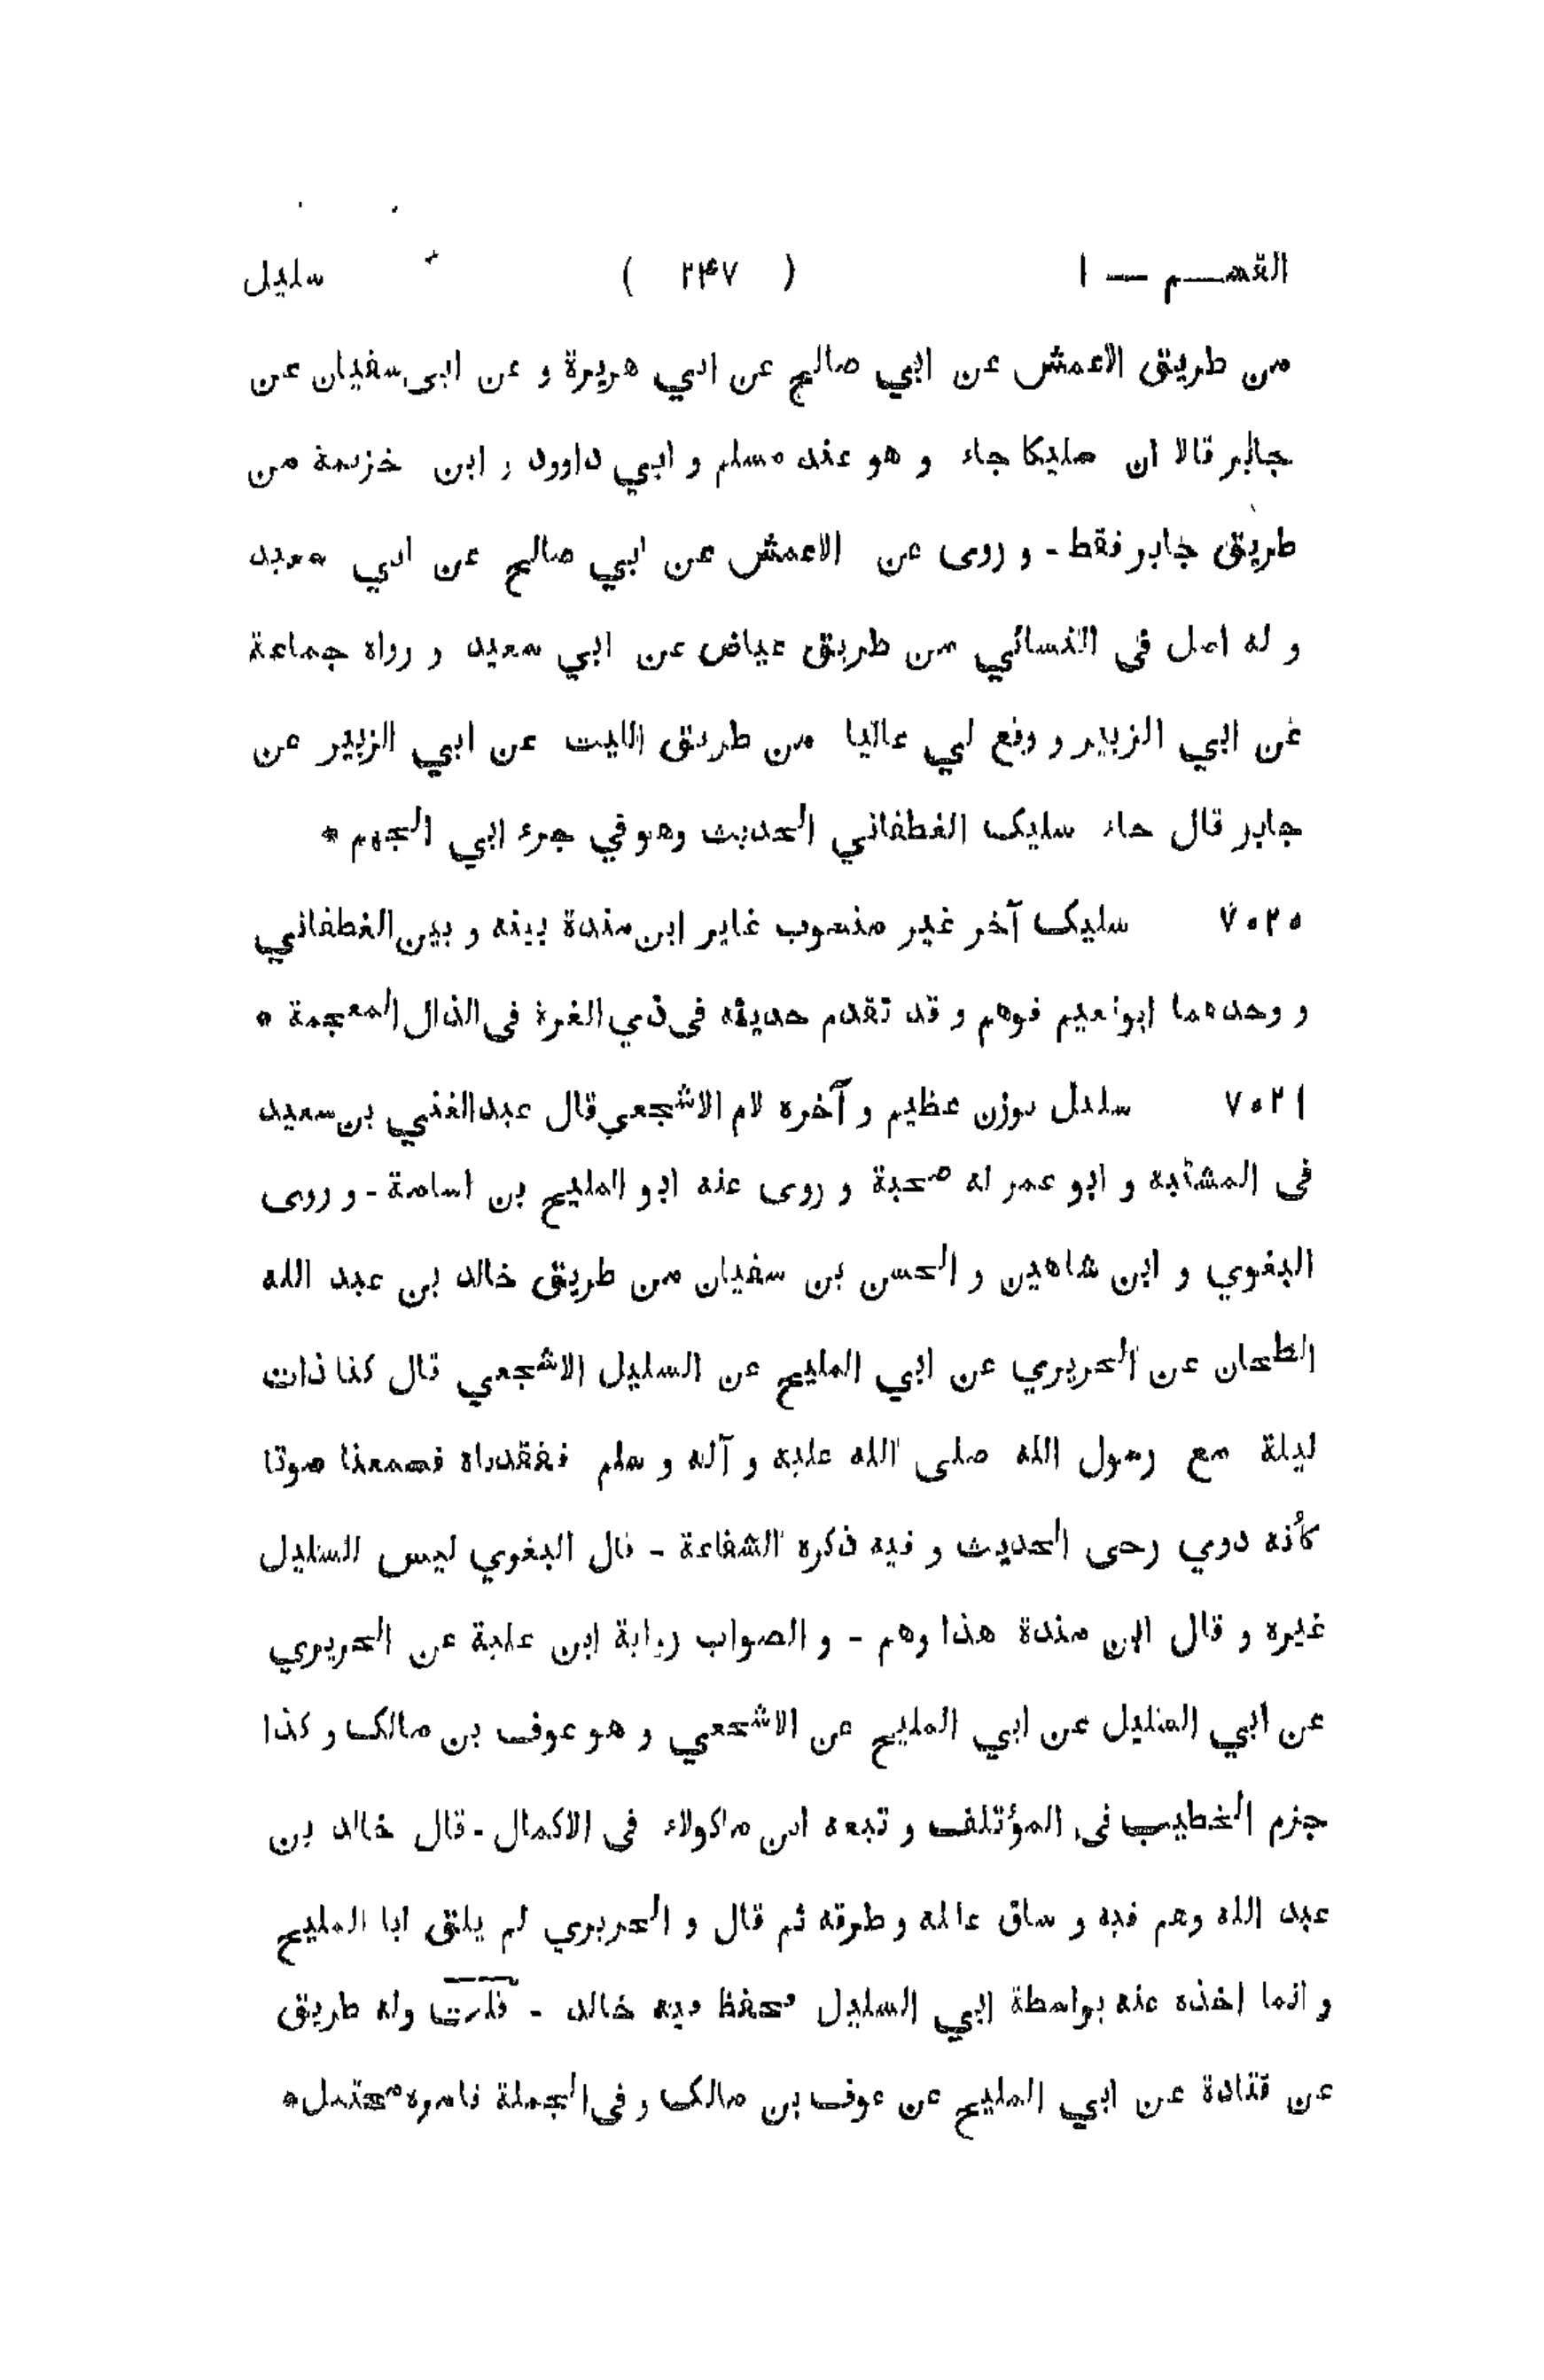 القسم — ا ( ٢٤٧ ) سليل
من طريق الاعمش عن ابي صالح عن ابي هريرة و عن ابى سفيان عن
جابر قالا ان سليكا جاء و هو عند مسلم و ابي داوود و ابن خزيمة من
طريق جابر فقط - و روى عن الاعمش عن ابي صالح عن ابي سعيد
و له اصل فى النسائي من طريق عياض عن ابي سعيد و رواه جماعة
عن ابي الزبير و وقع لي عاليا من طريق الليث عن ابي الزبير عن
جابر قال جاء سليک الغطفاني الحديث وهو في جزء ابي الجهم *
٧٠٢٥ سليک آخر غير منسوب غاير ابن مندة بينه و بين الغطفاني
و وحدهما ابو نعيم فوهم و قد تقدم حديثه فى ذي الغرة فى الذال المعجمة *
٧٠٢١ سليل بوزن عظيم و آخره لام الاشجعي قال عبد الغني بن سعيد
فى المشتبه و ابو عمر له صحبة و روى عنه ابو المليح بن اسامة - و روى
البغوي و ابن شاهين و الحسن بن سفيان من طريق خالد بن عبد الله
الطحان عن الجريري عن ابي المليح عن السليل الاشجعي قال كنا ذات
ليلة مع رسول الله صلى الله عليه و آله و سلم ففقدناه فسمعنا صوتا
كأنه دوي رحى الحديث و فيه ذكره الشفاعة - قال البغوي ليس للسليل
غيره و قال ابن مندة هذا وهم - و الصواب رواية ابن علية عن الجريري
عن ابي السليل عن ابي المليح عن الاشجعي و هو عوف بن مالک و كذا
جزم الخطيب فى المؤتلف و تبعه ابن ماكولاء فى الاكمال - قال خالد بن
عبد الله وهم فيه و ساق علله و طرقه ثم قال و الجريري لم يلق ابا المليح
و انما اخذه عنه بواسطة ابي السليل فحفظ فيه خالد - قلت وله طريق
عن قتادة عن ابي المليح عن عوف بن مالک و فى الجملة فامره محتمل *